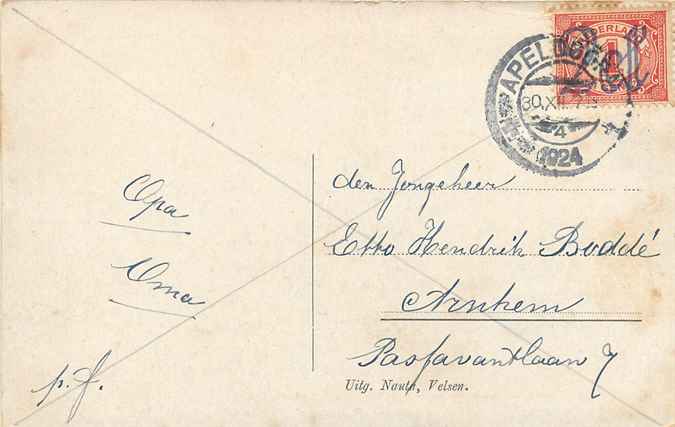 NEDERLAND
APELDOORN
30.XII
4
1924
Opa
Oma
p.f.
den Jongeheer
Etto Hendrik Boddé
Arnhem
Passavantlaan 7
Uitg. Nauta, Velsen.